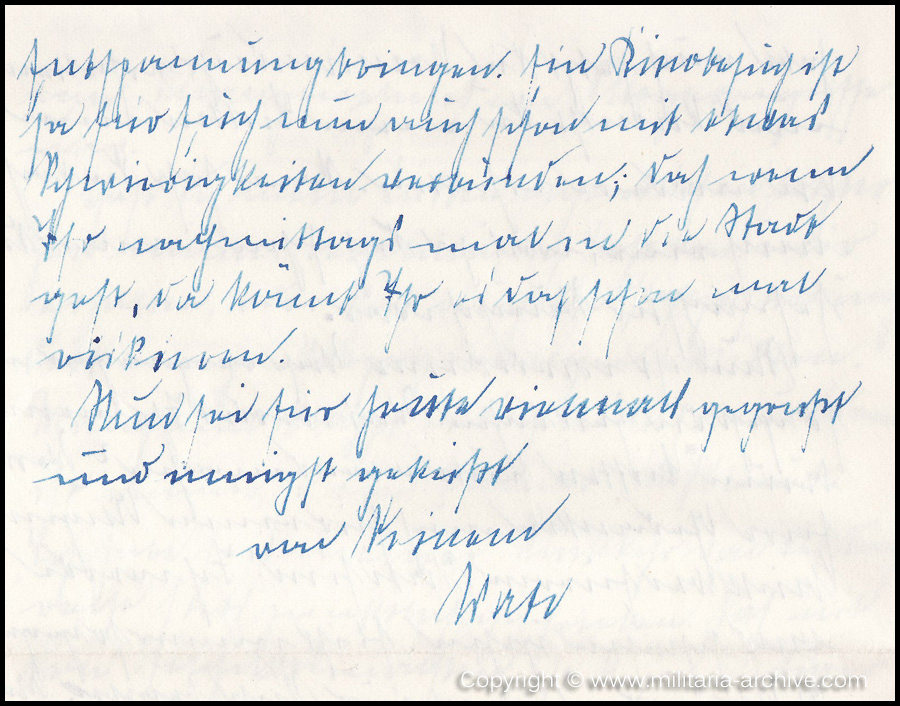 Entspannung bringen. Ein Kinobesuch ist
ja für Euch nun auch schon mit etwas
Schwierigkeiten verbunden; doch wenn
Ihr nachmittags mal in die Stadt
geht, da könnt Ihr es doch schon mal
riskieren.
Nun sei für heute vielmals gegrüßt
und innigst geküßt
von Deinem
Copyright © www.militaria-archive.com